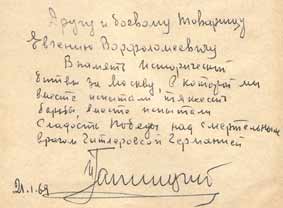 Другу и боевому товарищу
Евгению Варфоломеевичу
В память исторической
битвы за Москву, в которой мы
вместе испытали тяжесть
борьбы, вместе испытали
сладость победы над смертельным
врагом гитлеровской Германией
21.1.69